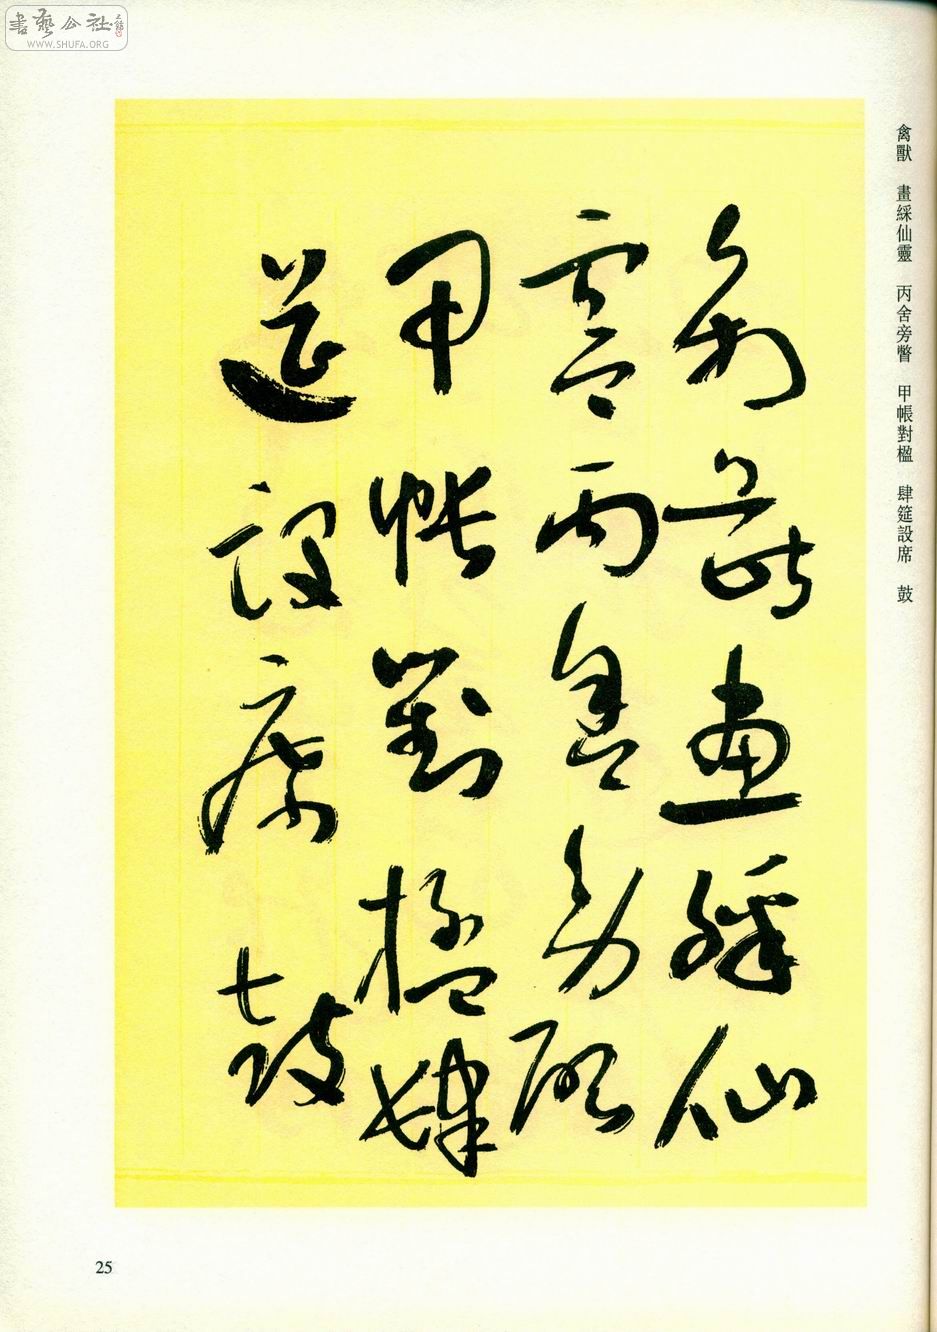 書藝公社
WWW.SHUFA.ORG
禽獸 畫綵仙靈 丙舍旁晵 甲帳對楹 肆筵設席 鼓
禽獸畫綵仙
靈丙舍旁啓
甲帳對楹肆
筵設席鼓
25